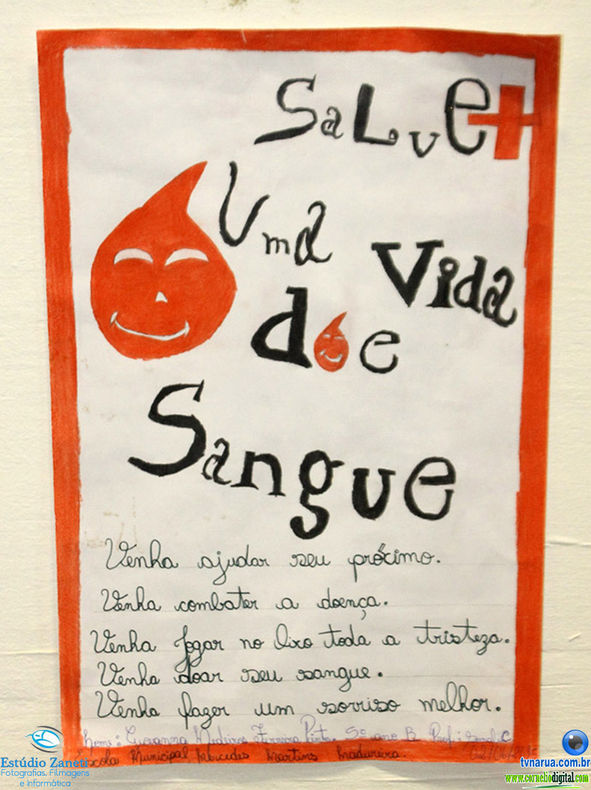 SaLvE
Uma Vida
dOe
Sangue
Venha ajudar seu próximo.
Venha combater a doença.
Venha jogar no lixo toda a tristeza.
Venha doar seu sangue.
Venha fazer um sorriso melhor.
Nome: Giovanna Ferreira B. Prof:
Escola Municipal Martins
Estúdio Zanetti
Fotografias, Filmagens
e Informática
tvnarua.com.br
www.corneliodigital.com